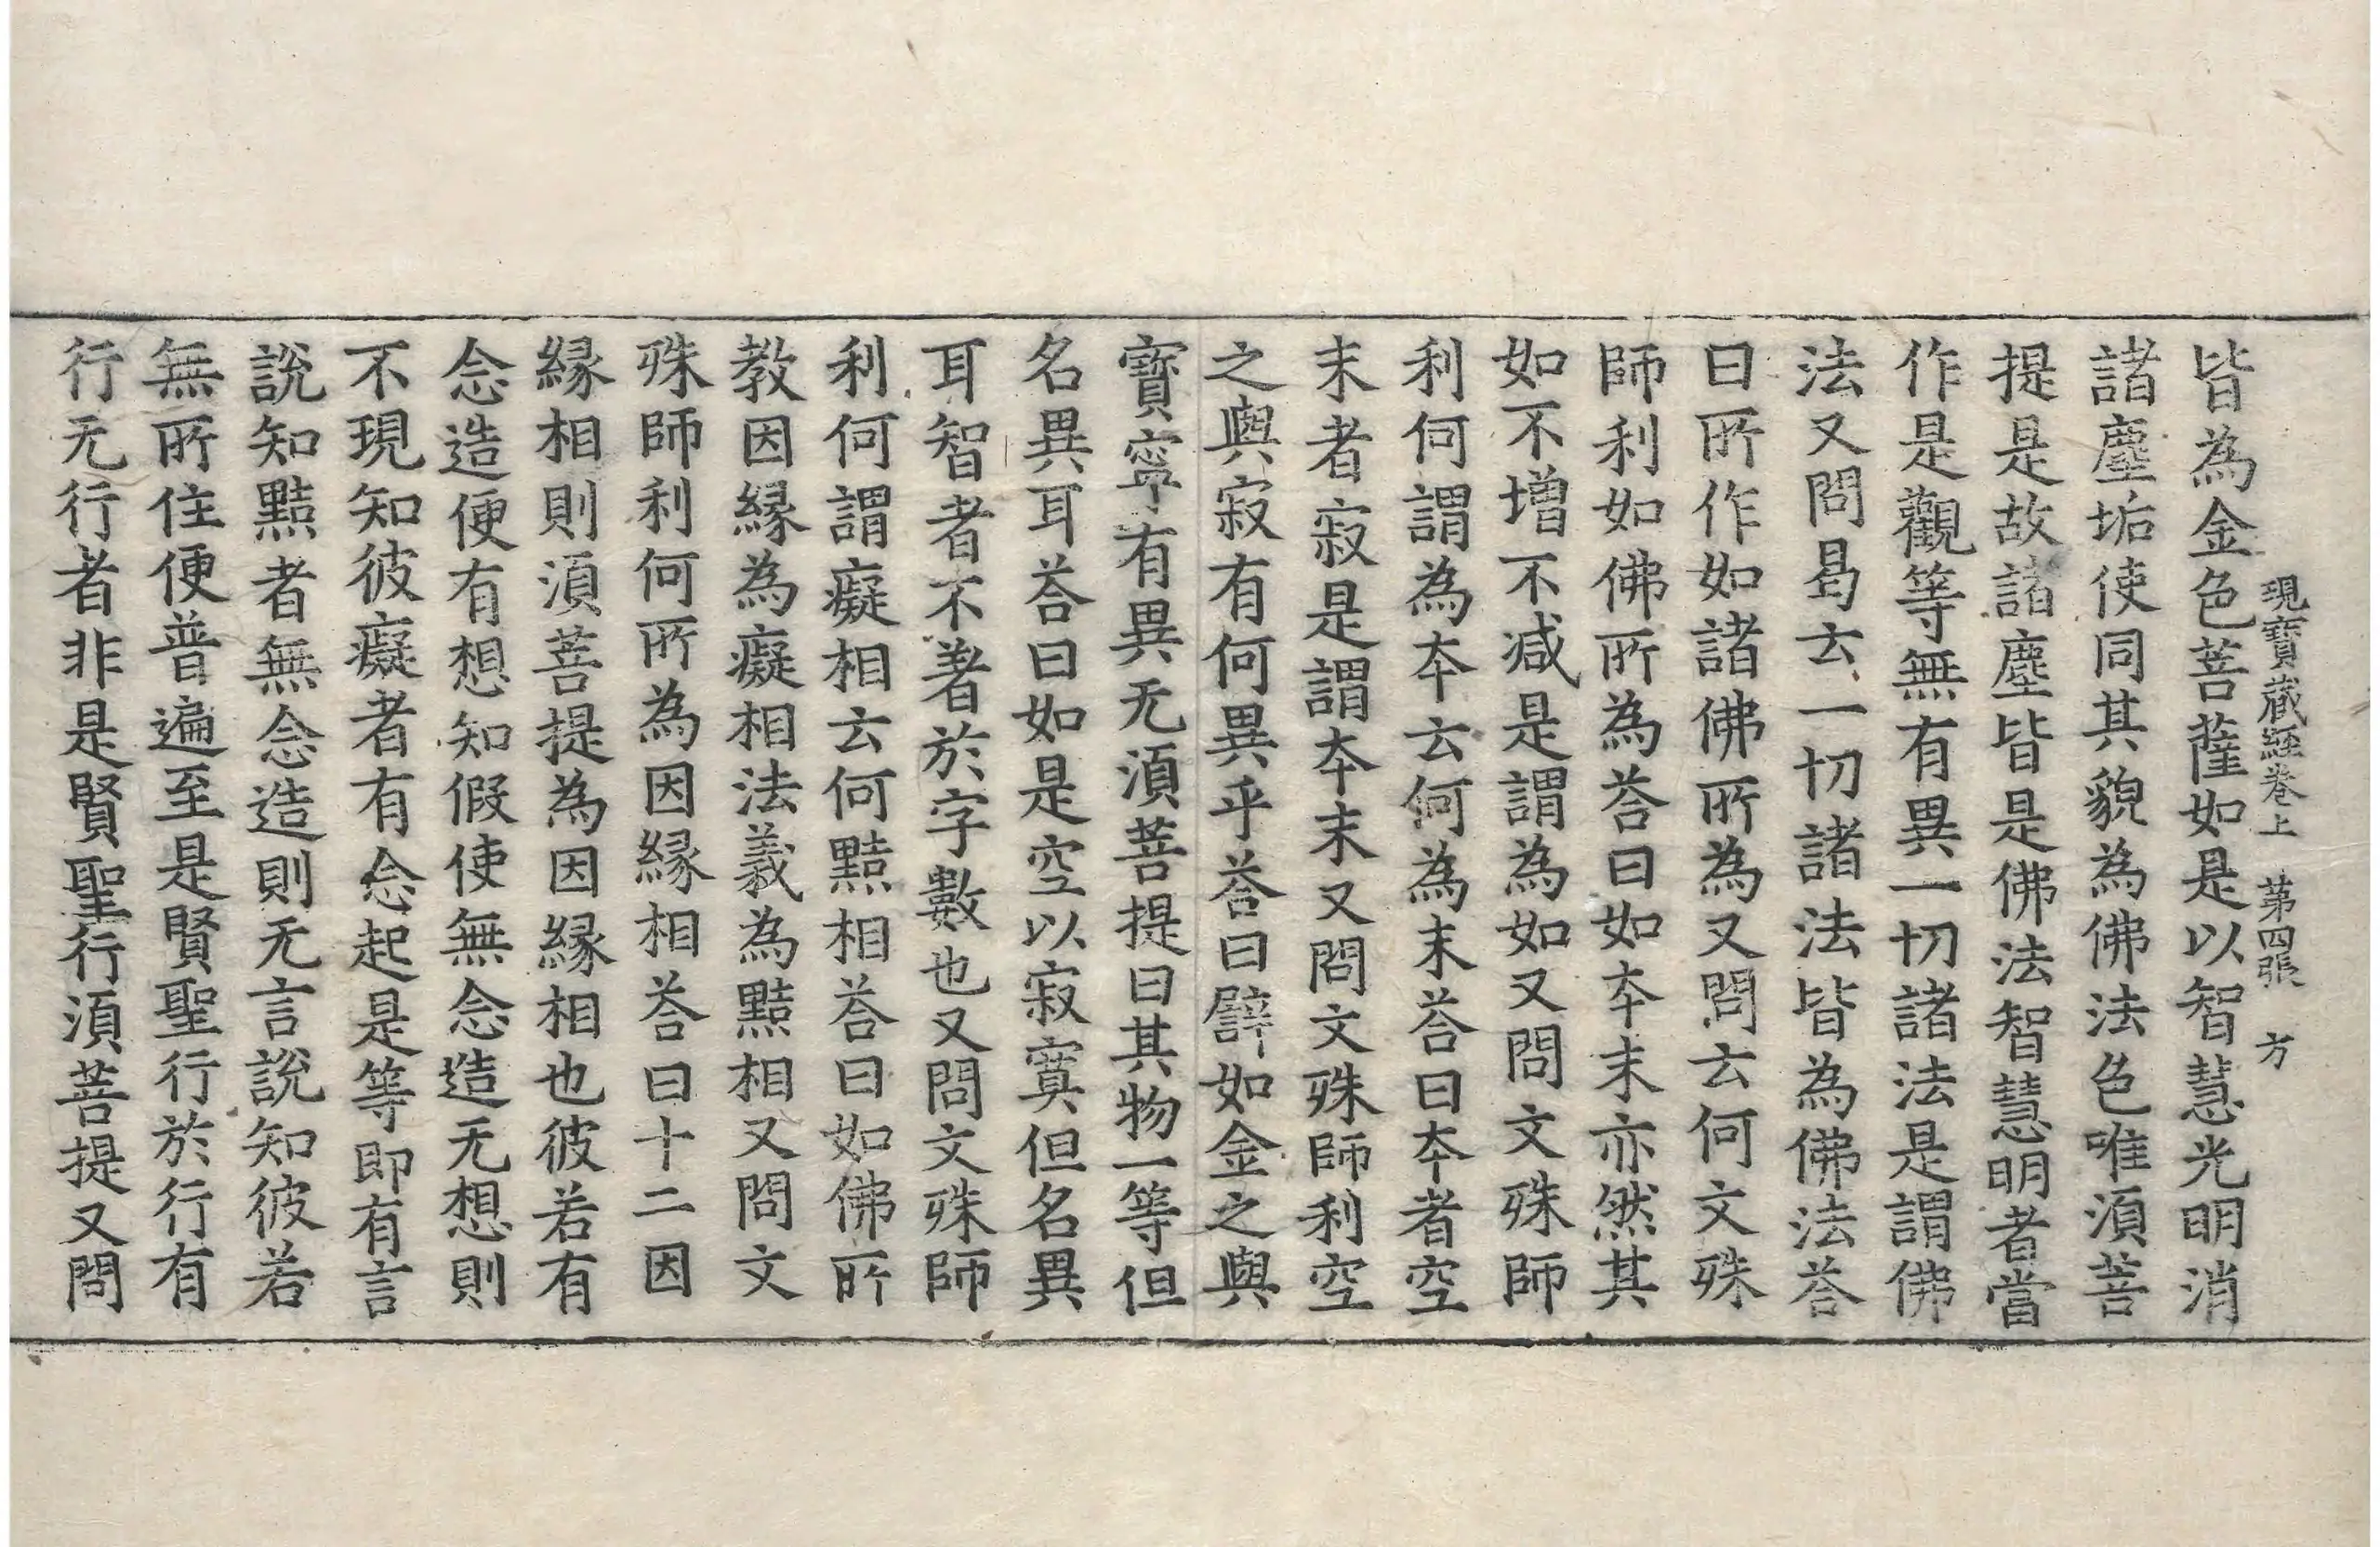 現寶蔵經卷上 第四張 方
皆為金色菩薩如是以智慧光明消
諸塵垢使同其貌為佛法色唯湏菩
提是故諸塵皆是佛法智慧明者當
作是觀等無有異一切諸法是謂佛
法又問曷云一切諸法皆為佛法荅
曰所作如諸佛所為又問云何文殊
師利如佛所為荅曰如夲末亦然其
如不增不减是謂為如又問文殊師
利何謂為夲云何為末荅曰夲者空
末者寂是謂夲末又問文殊師利空
之與寂有何異乎荅曰譬如金之與
寶寧有異无湏菩提曰其物一等但
名異耳荅曰如是空以寂寞但名異
耳智者不著於字數也又問文殊師
利何謂癡相云何黠相荅曰如佛所
教因縁為癡相法義為黠相又問文
殊師利何所為因縁相荅曰十二因
縁相則湏菩提為因縁相也彼若有
念造便有想知假使無念造无想則
不現知彼癡者有念起是等即有言
說知黠者無念造則无言說知彼若
無所住便普遍至是賢聖行於行有
行无行者非是賢聖行湏菩提又問